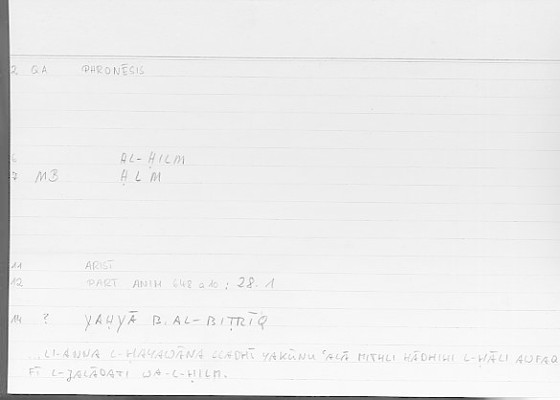 2 QA PHRONĒSIS
6 AL-ḤILM
7 MB ḤLM
11 ARIST
12 PART ANIM 648 a 10 ; 28.1
14 ? YAḤYĀ B. AL-BIṬRĪQ
... LI-ANNA L-ḤAYAWĀNA LLADHĪ YAKŪNU ʿALĀ MITHLI HĀDHIHI L-ḤĀLI AUFAQ
FĪ L-JALĀDATI WA-L-ḤILM.